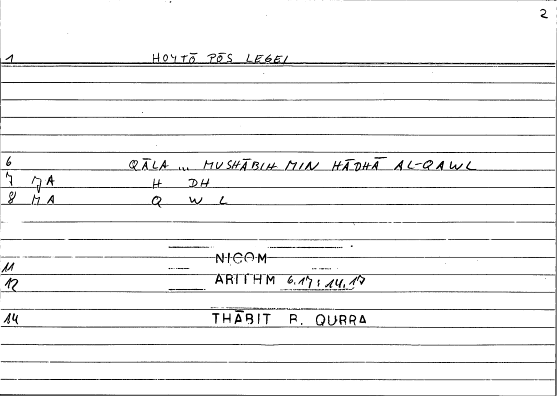 2
1 HOYTŌ PŌS LEGEI
6 QĀLA ... MUSHĀBIH MIN HĀDHĀ AL-QAWL
7 MA H DH
8 MA Q W L
11 NICOM
12 ARITHM 6.17 : 14,17
14 THĀBIT B. QURRA